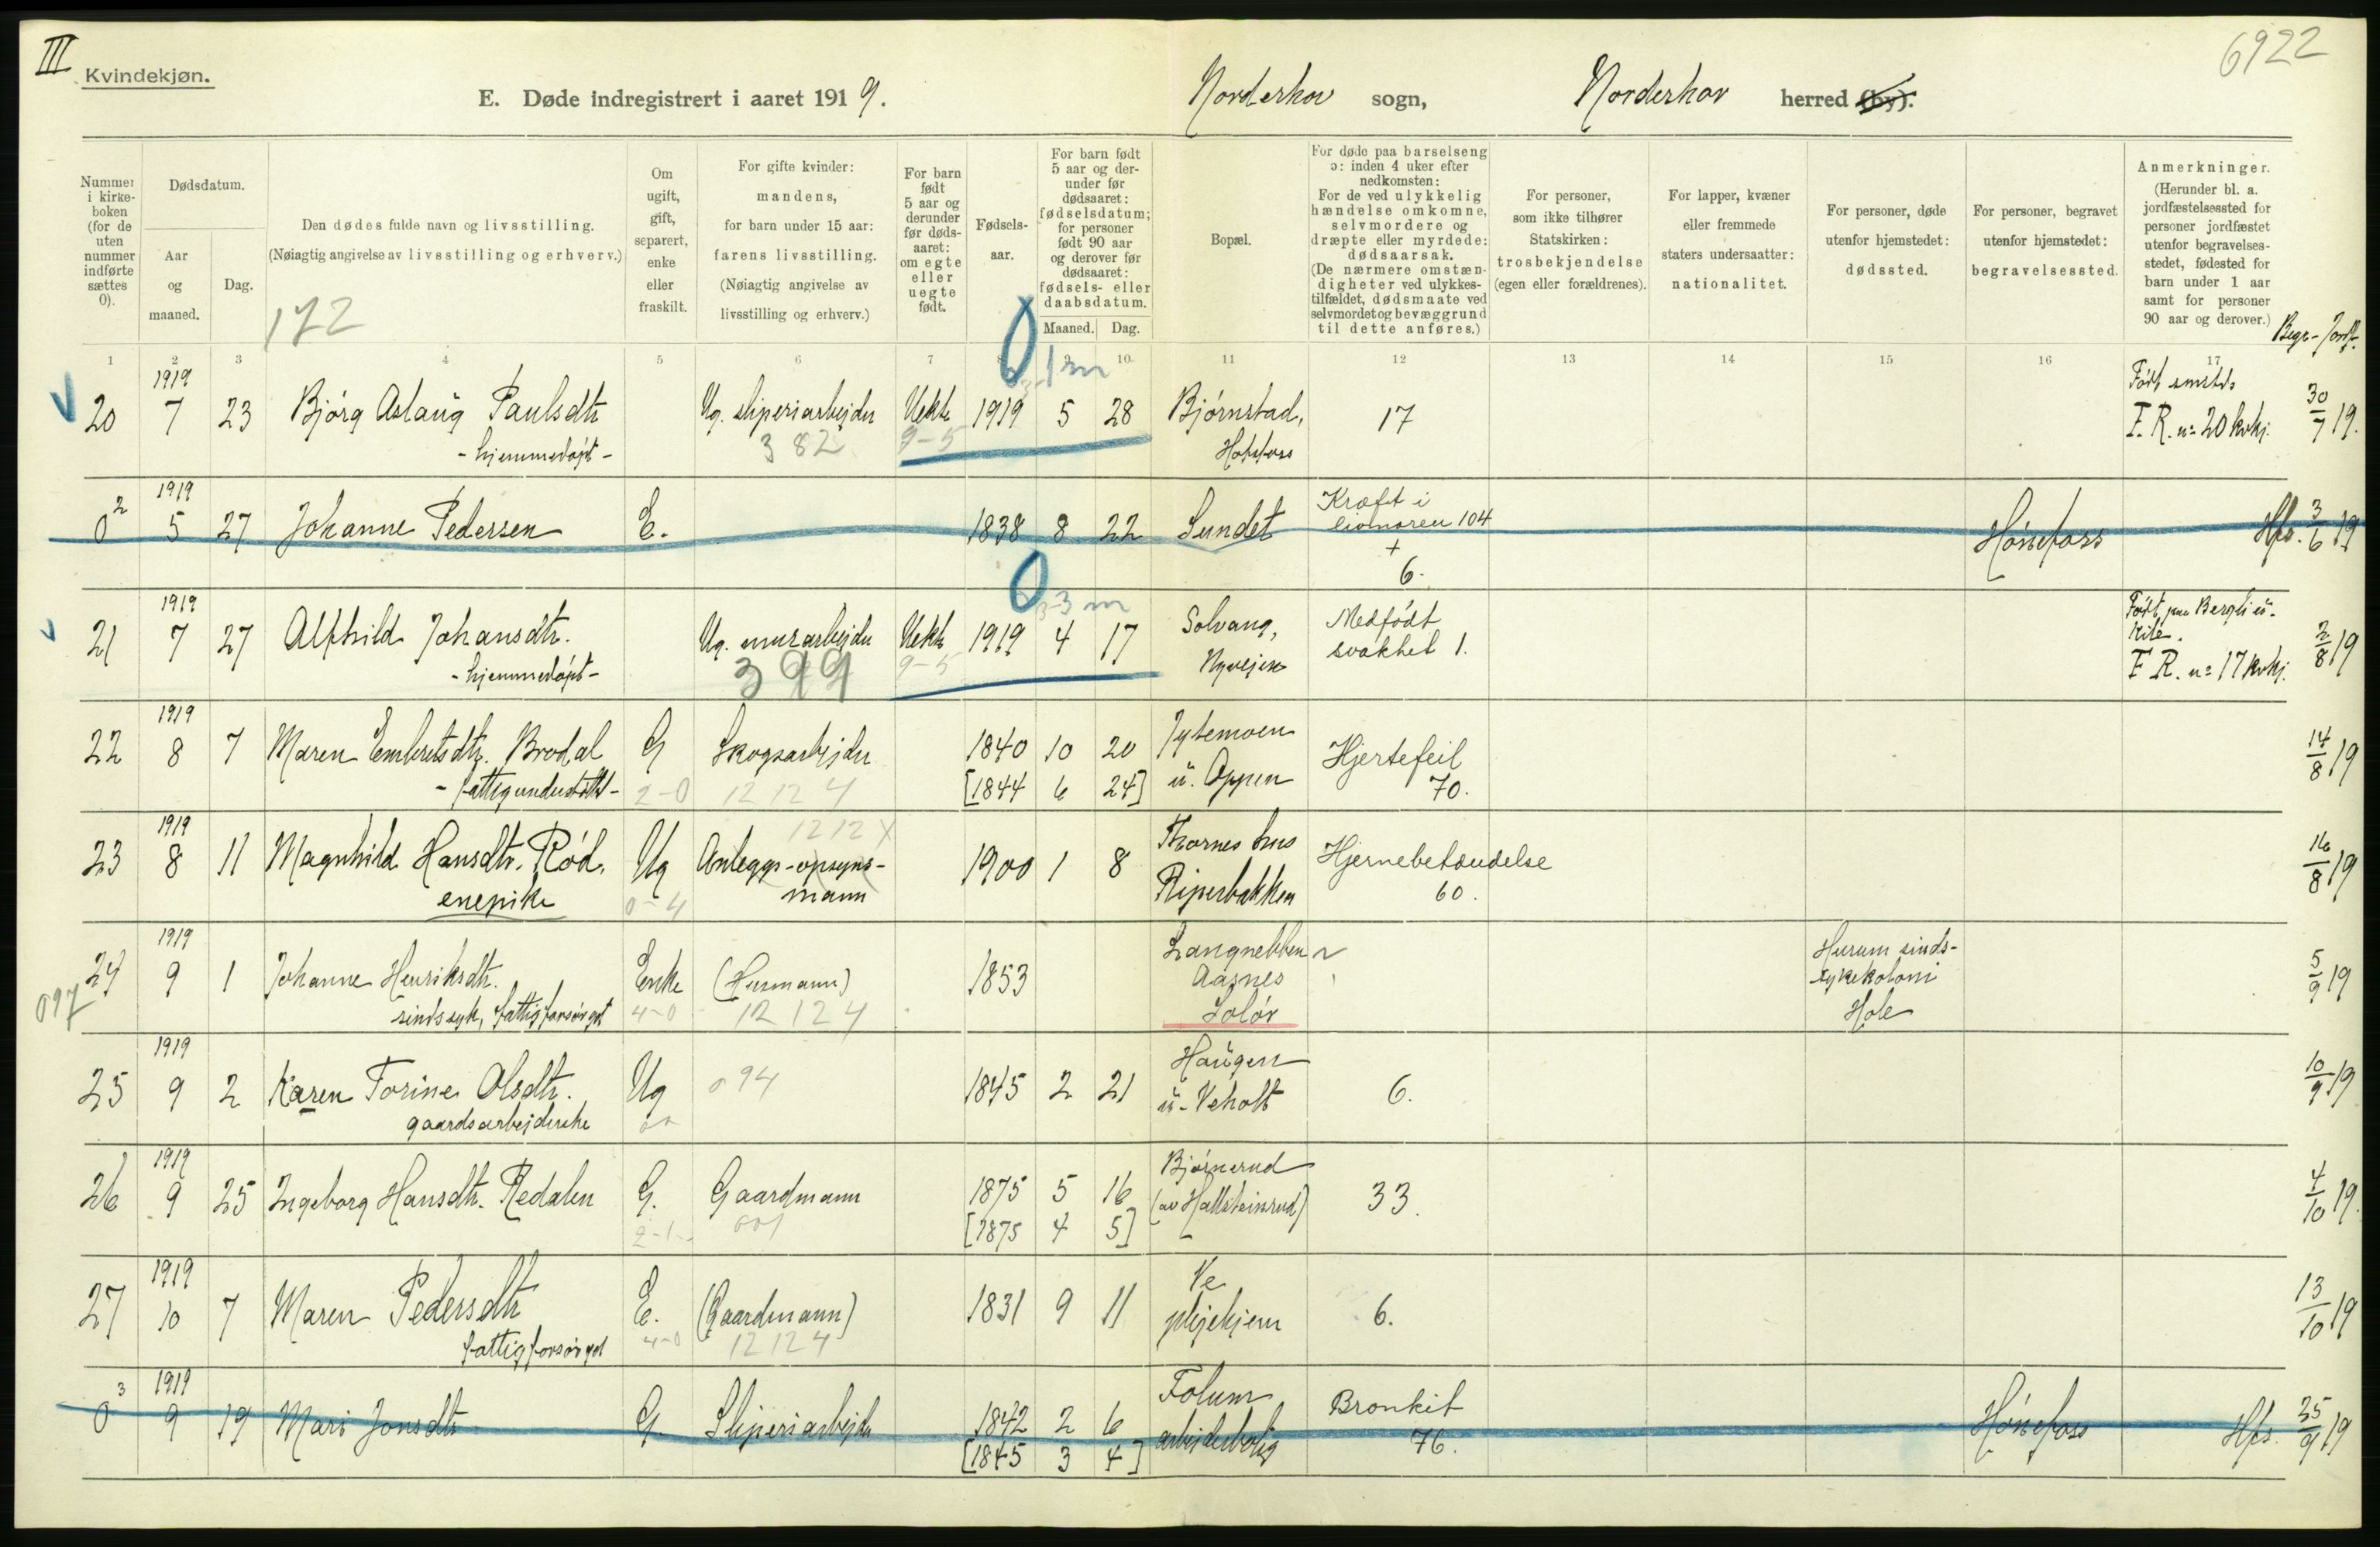 III
Kvindekjøn.
6922
E. Døde indregistrert i aaret 1919. Norderhov sogn, Norderhov herred (by).
Nummer i kirkeboken (for de uten nummer indførte sættes 0).
Dødsdatum.
Aar og maaned.
Dag.
Den dødes fulde navn og livsstilling.
(Nøiagtig angivelse av livsstilling og erhverv.)
172
Om ugift, gift, separert, enke eller fraskilt.
For gifte kvinder: mandens, for barn under 15 aar: farens livsstilling. (Nøiagtig angivelse av livsstilling og erhverv.)
For barn født 5 aar og derunder før dødsaaret: om egte eller uegte født.
Fødselsaar.
For barn født 5 aar og derunder før dødsaaret: fødselsdatum; for personer født 90 aar og derover før dødsaaret: fødsels- eller daabsdatum.
Maaned. Dag.
Bopæl.
For døde paa barselseng ɔ: inden 4 uker efter nedkomsten: For de ved ulykkelig hændelse omkomne, selvmordere og dræpte eller myrdede: dødsaarsak. (De nærmere omstændigheter ved ulykkestilfældet, dødsmaate ved selvmordet og bevæggrund til dette anføres.)
For personer, som ikke tilhører Statskirken: trosbekjendelse (egen eller forældrenes).
For lapper, kvæner eller fremmede staters undersaatter: nationalitet.
For personer, døde utenfor hjemstedet: dødssted.
For personer, begravet utenfor hjemstedet: begravelsessted.
Anmerkninger. (Herunder bl. a. jordfæstelsessted for personer jordfæstet utenfor begravelsesstedet, fødested for barn under 1 aar samt for personer 90 aar og derover.)
Begr- Jordf.
1 2 3 4 5 6 7 8 9 10 11 12 13 14 15 16 17
0 1 m
1919 Født smstds
20 7 23 Bjørg Aslaug Paulsdtr Ug. sliperiarbejder Uekte 1919 5 28 Bjørnstad, 17 F. R. n= 20 kvkj. 30/7 19.
- hjemmedøpt - 382 9-5 Hofsfoss
1919 Kræft i
0 2 5 27 Johanne Pedersen E. 1838 8 22 Sundet livmoren 104 Hønefoss Hfs. 3/6 19
+
6.
0 3 m
1919 Født paa Bergli u.
21 7 27 Alfhild Johansdtr. Ug. murarbejder Uekte 1919 4 17 Solvang, Medfødt
- hjemmedøpt - 399 9-5 Nyvejen svakhet 1. F R. n= 17 kvkj. 2/8 19
1919
22 8 7 Maren Embretsdtr. Brodal G Skogsarbejder 1840 10 20 Jytemoen Hjertefeil 14/8 19
- fattigunderstøttet - 2-0 12 12 4 [1844 6 24] u. Oppen 70.
1919 1212 X
23 8 11 Magnhild Hansdtr. Rød, Ug Anleggs-opsyns- 1900 1 8 Thornes hus Hjernebetændelse 16/8 19
enepike 0-4 mann Riperbakken 60.
1919
24 9 1 Johanne Henriksdtr. Enke (Husmann) 1853 Langnebben Hurum sinds- 5/9 19
097 sindssyk, fattigforsørget 4-0 12 12 4 Aasnes sykekoloni
Solør Hole
1919
25 9 2 Karen Torine Olsdtr. Ug 094 1845 2 21 Haugen 6. 10/9 19
gaardsarbejderske u. Veholt
1919 Bjørnerud
26 9 25 Ingeborg Hansdtr. Redalen G. Gaardmann 1875 5 16 (av Hallsteinrud) 33. 4/10 19.
2-1 001 [1875 4 5]
1919
27 10 7 Maren Pedersdtr E. (Gaardmann) 1831 9 11 Ve 6. 13/10 19
fattigforsørget 4-0 12 12 4 plejehjem
3 1919
0 9 19 Mari Jonsdtr G. Sliperiarbejder 1842 2 6 Folum Bronkit Hønefoss Hfs. 25/9 19
[1845 3 4] arbejderbolig 76.